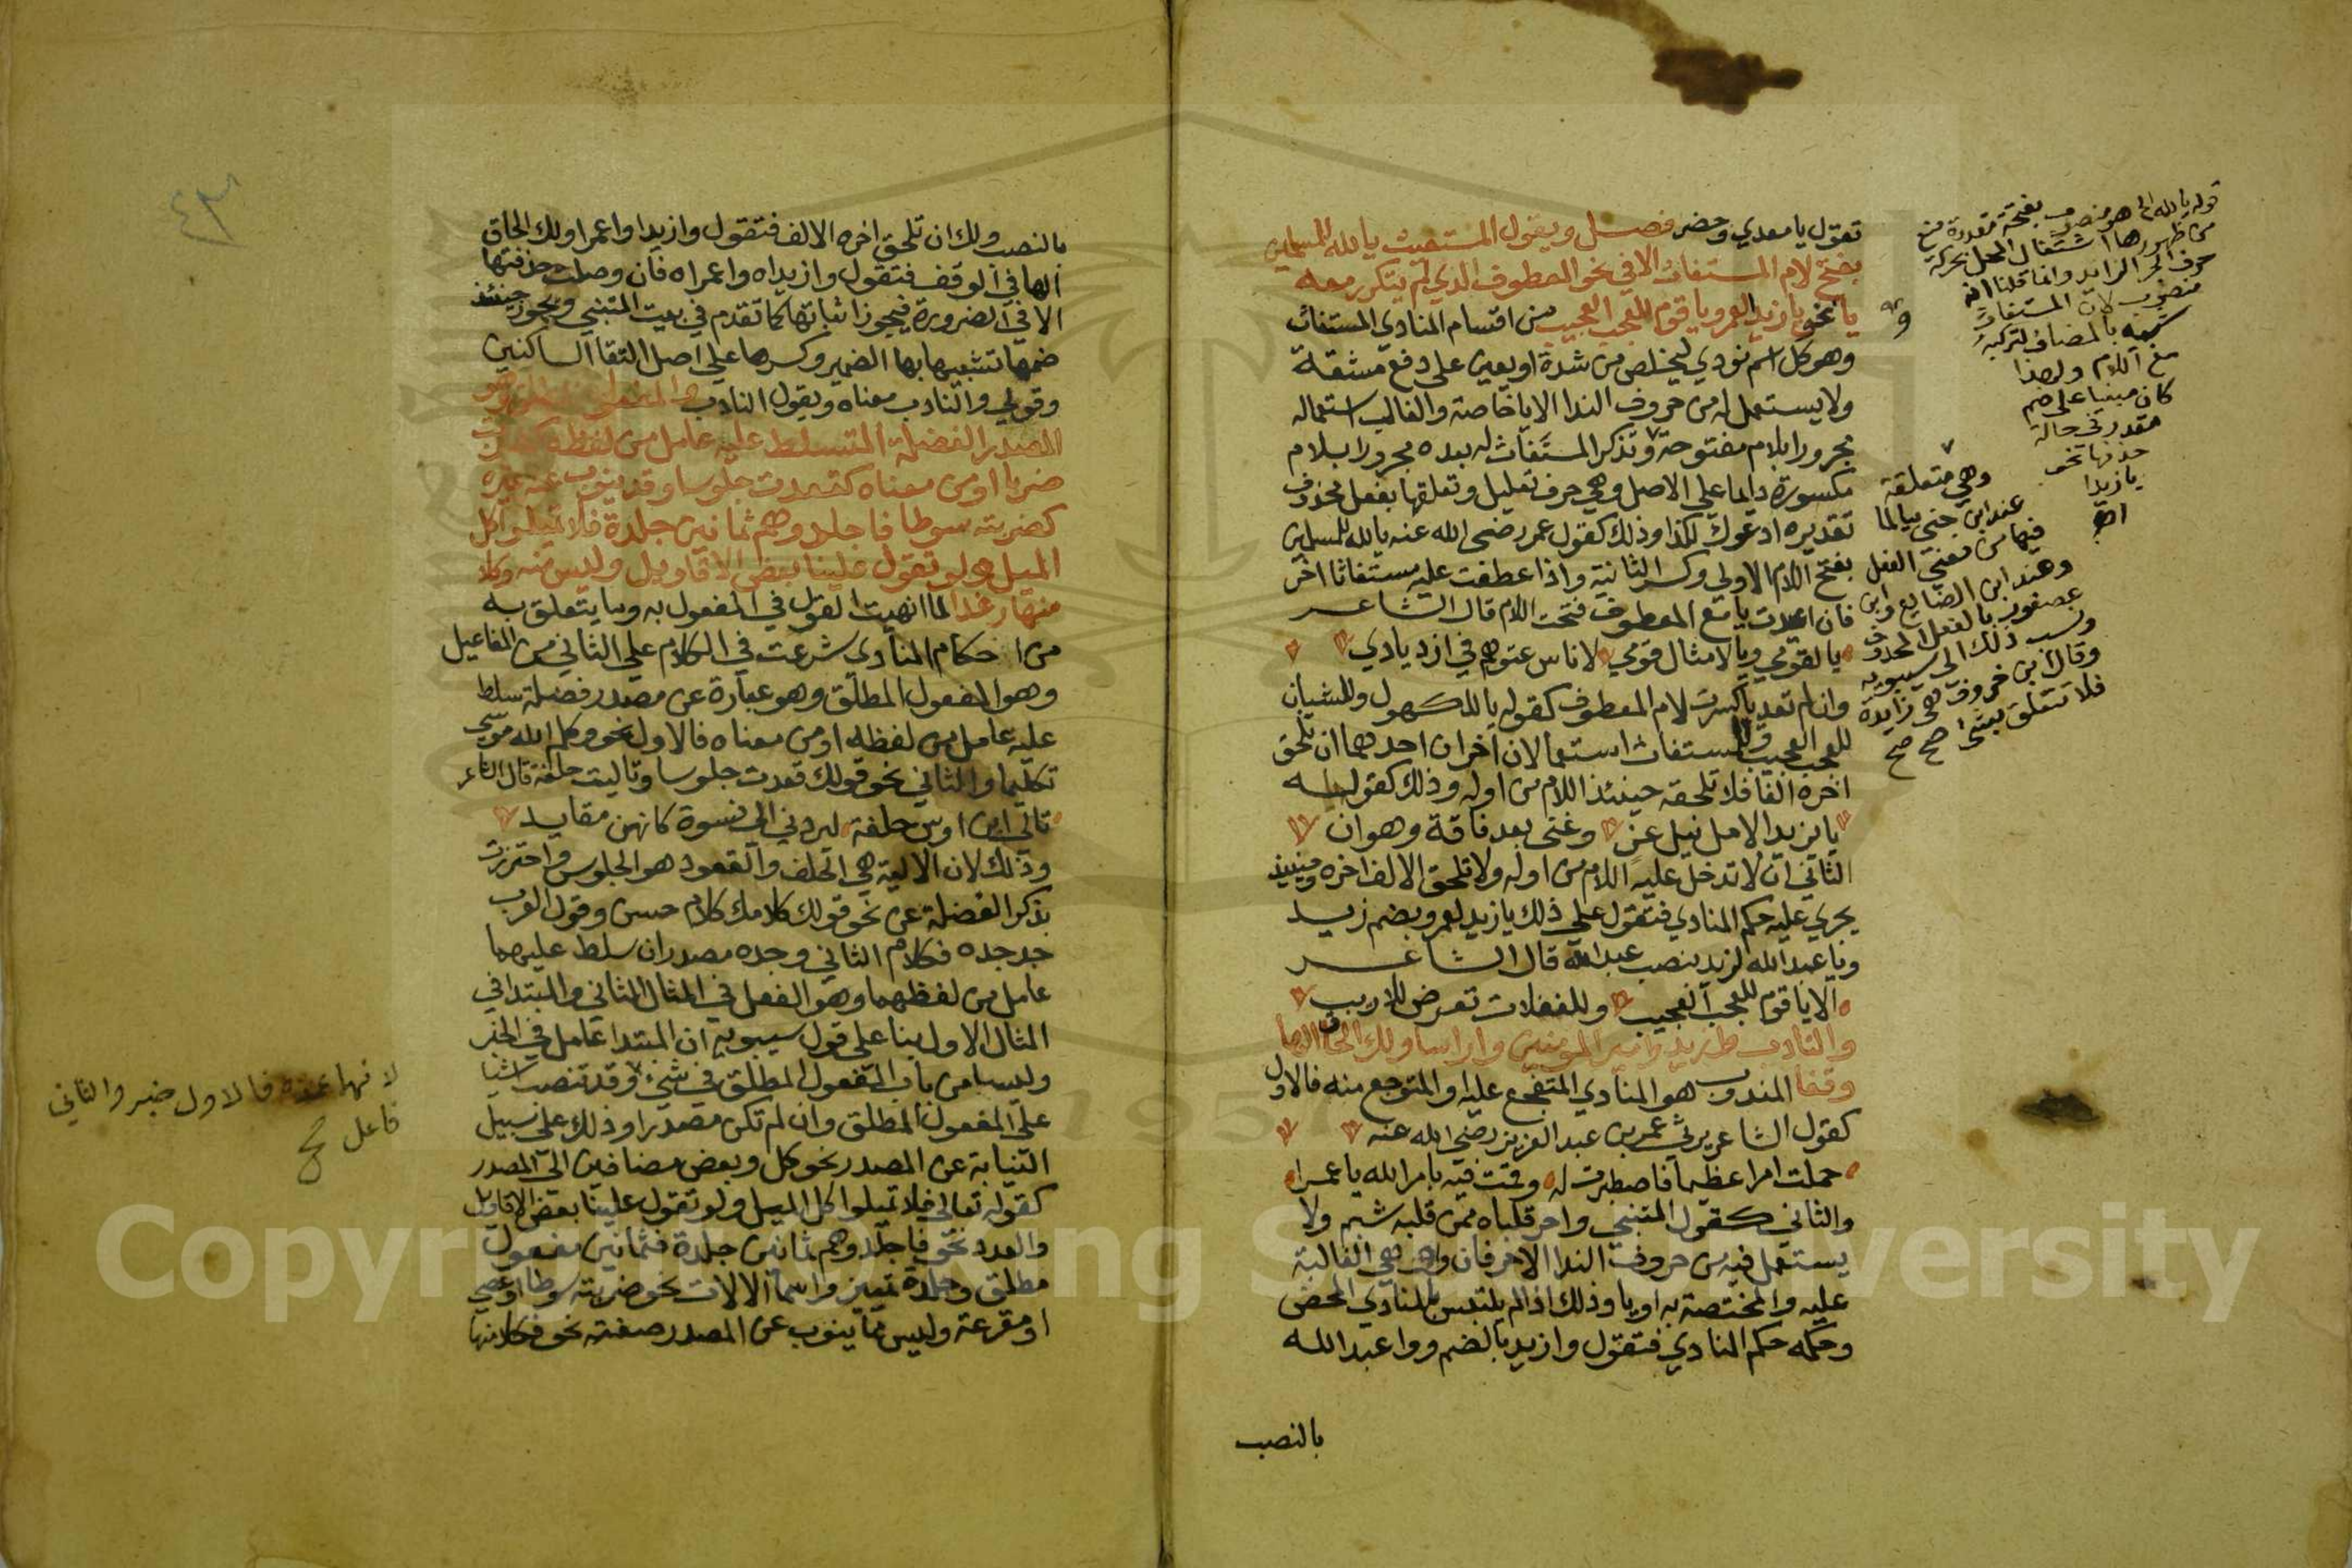 تقول يا معدي وحضر فصل ويقول المستغيث يا لله للمسلمين
بفتح لام المستغاث الا في نحو المعطوف الذي لم يتكرر معه
يا نحو يا زيد لعمرو يا قوم للعجب العجيب من اقسام المنادي المستغاث
وهو كل اسم نودي ليخلص من شدة او يعين على دفع مشقة
ولا يستعمل له من حروف الندا الا يا خاصة والغالب استعماله
مجرورا بلام مفتوحة وتذكر المستغاث له بعده مجرورا بلام
مكسورة دايما علي الاصل وهي حرف تعليل وتعلقها بفعل محذوف
تقديره ادعوك لكذا وذلك كقول عمر رضي الله عنه يا لله للمسلمين
بفتح اللام الاولي وكسر الثانية واذا عطفت عليه مستغاثا اخر
فان اعدت يا مع المعطوف فتحت اللام قال الشاعر
يا لقومي ويا لامثال قومي لاناس عتوهم في ازديادي
وان لم تعد يا كسرت لام المعطوف كقوله يا للكهول وللشبان
للعجب العجيب وللمستغاث استعمالان اخران احدهما ان تلحق
اخره الفا فلا تلحقه حينئذ اللام من اوله وذلك كقوله
يا يزيدا لامل نيل عز وغني بعد فاقة وهوان
الثاني ان لا تدخل عليه اللام من اوله ولا تلحق الالف اخره وحينيذ
يجري عليه حكم المنادي فتقول علي ذلك يا زيد لعمرو بضم زيد
ويا عبد الله لزيد بنصب عبد الله قال الشاعر
الا يا قوم للعجب العجيب وللغفلات تعرض للاريب
والنادب وا زيدا وا امير المومنين وا راسا ولك الحاق الها
وقفا المندوب هو المنادي المتفجع عليه او المتوجع منه فالاول
كقول الشاعر يرثي عمر بن عبد العزيز رضي الله عنه
حملت امرا عظيما فاصطبرت له وقمت فيه بامر الله يا عمرا
والثاني كقول المتنبي واحر قلباه ممن قلبه شبم ولا
يستعمل فيه من حروف الندا الا حرفان وا وهي الغالبة
عليه والمختصة به او يا وذلك اذا لم يلتبس بالمنادي المحض
وحكمه حكم المنادي فتقول وا زيد بالضم ووا عبد الله
بالنصب
قوله يا لله الخ هو منصوب بفتحة مقدرة منع
من ظهورها اشتغال المحل بحركة
حرف الجر الزايد وانما قلنا انه
منصوب لان المستغاث
شبيه بالمضاف لتركبه
مع اللام ولهذا
كان مبنيا على ضم
مقدر في حالة
حذفها نحو
يا زيدا
وهي متعلقة
عند ابن جني بيا لما
فيها من معني الفعل
وعند ابن الضايع وابن
عصفور بالفعل المحذوف
ونسب ذلك الي سيبويه
وقال ابن خروف هي زايدة
فلا تتعلق بشي صح صح
٤٣
بالنصب ولك ان تلحق اخره الالف فتقول وا زيدا وا عمرا ولك الحاق
الها في الوقف فتقول وا زيداه وا عمراه فان وصلت حذفتها
الا في الضرورة فيجوز اثباتها كما تقدم في بيت المتنبي ويجوز حينئذ
ضمها تشبيها بها الضمير وكسرها علي اصل التقا الساكنين
وقولي والنادب معناه ويقول النادب والمفعول المطلق وهو
المصدر الفضلة المتسلط عليه عامل من لفظه كضربت
ضربا او من معناه كقعدت جلوسا وقد ينوب عنه غيره
كضربته سوطا فاجلدوهم ثمانين جلدة فلا تميلوا كل
الميل ولو تقول علينا بعض الاقاويل وليس منه وكلا
منها رغدا لما انهيت القول في المفعول به وما يتعلق به
من احكام المنادي شرعت في الكلام علي الثاني من المفاعيل
وهو المفعول المطلق وهو عبارة عن مصدر فضلة سلط
عليه عامل من لفظه او من معناه فالاول نحو وكلم الله موسى
تكليما والثاني نحو قولك قعدت جلوسا وتاليت حلفة قال الشاعر
تالي ابن اوس حلفة ليردني الى نسوة كانهن مفايد
وذلك لان الالية هي الحلف والقعود هو الجلوس واحترزت
بذكر الفضلة عن نحو قولك كلامك كلام حسن وقول العرب
جد جده فكلام الثاني وجده مصدران سلط عليهما
عامل من لفظهما وهو الفعل في المثال الثاني والمبتدا في
المثال الاول بنا على قول سيبويه ان المبتدا عامل في الخبر
وليسا من باب المفعول المطلق في شيء وقد تنصب اشيا
على المفعول المطلق وان لم تكن مصدرا وذلك على سبيل
النيابة عن المصدر نحو كل وبعض مضافين الى المصدر
كقوله تعالي فلا تميلوا كل الميل ولو تقول علينا بعض الاقاويل
والعدد نحو فاجلدوهم ثمانين جلدة فثمانين مفعول
مطلق وجلدة تمييز واسما الالات نحو ضربته سوطا او عصي
او مقرعة وليس مما ينوب عن المصدر صفته نحو فكلا منها
لانهما عمدة فالاول خبر والثاني
فاعل صح
Copyright © King Saud University
1957